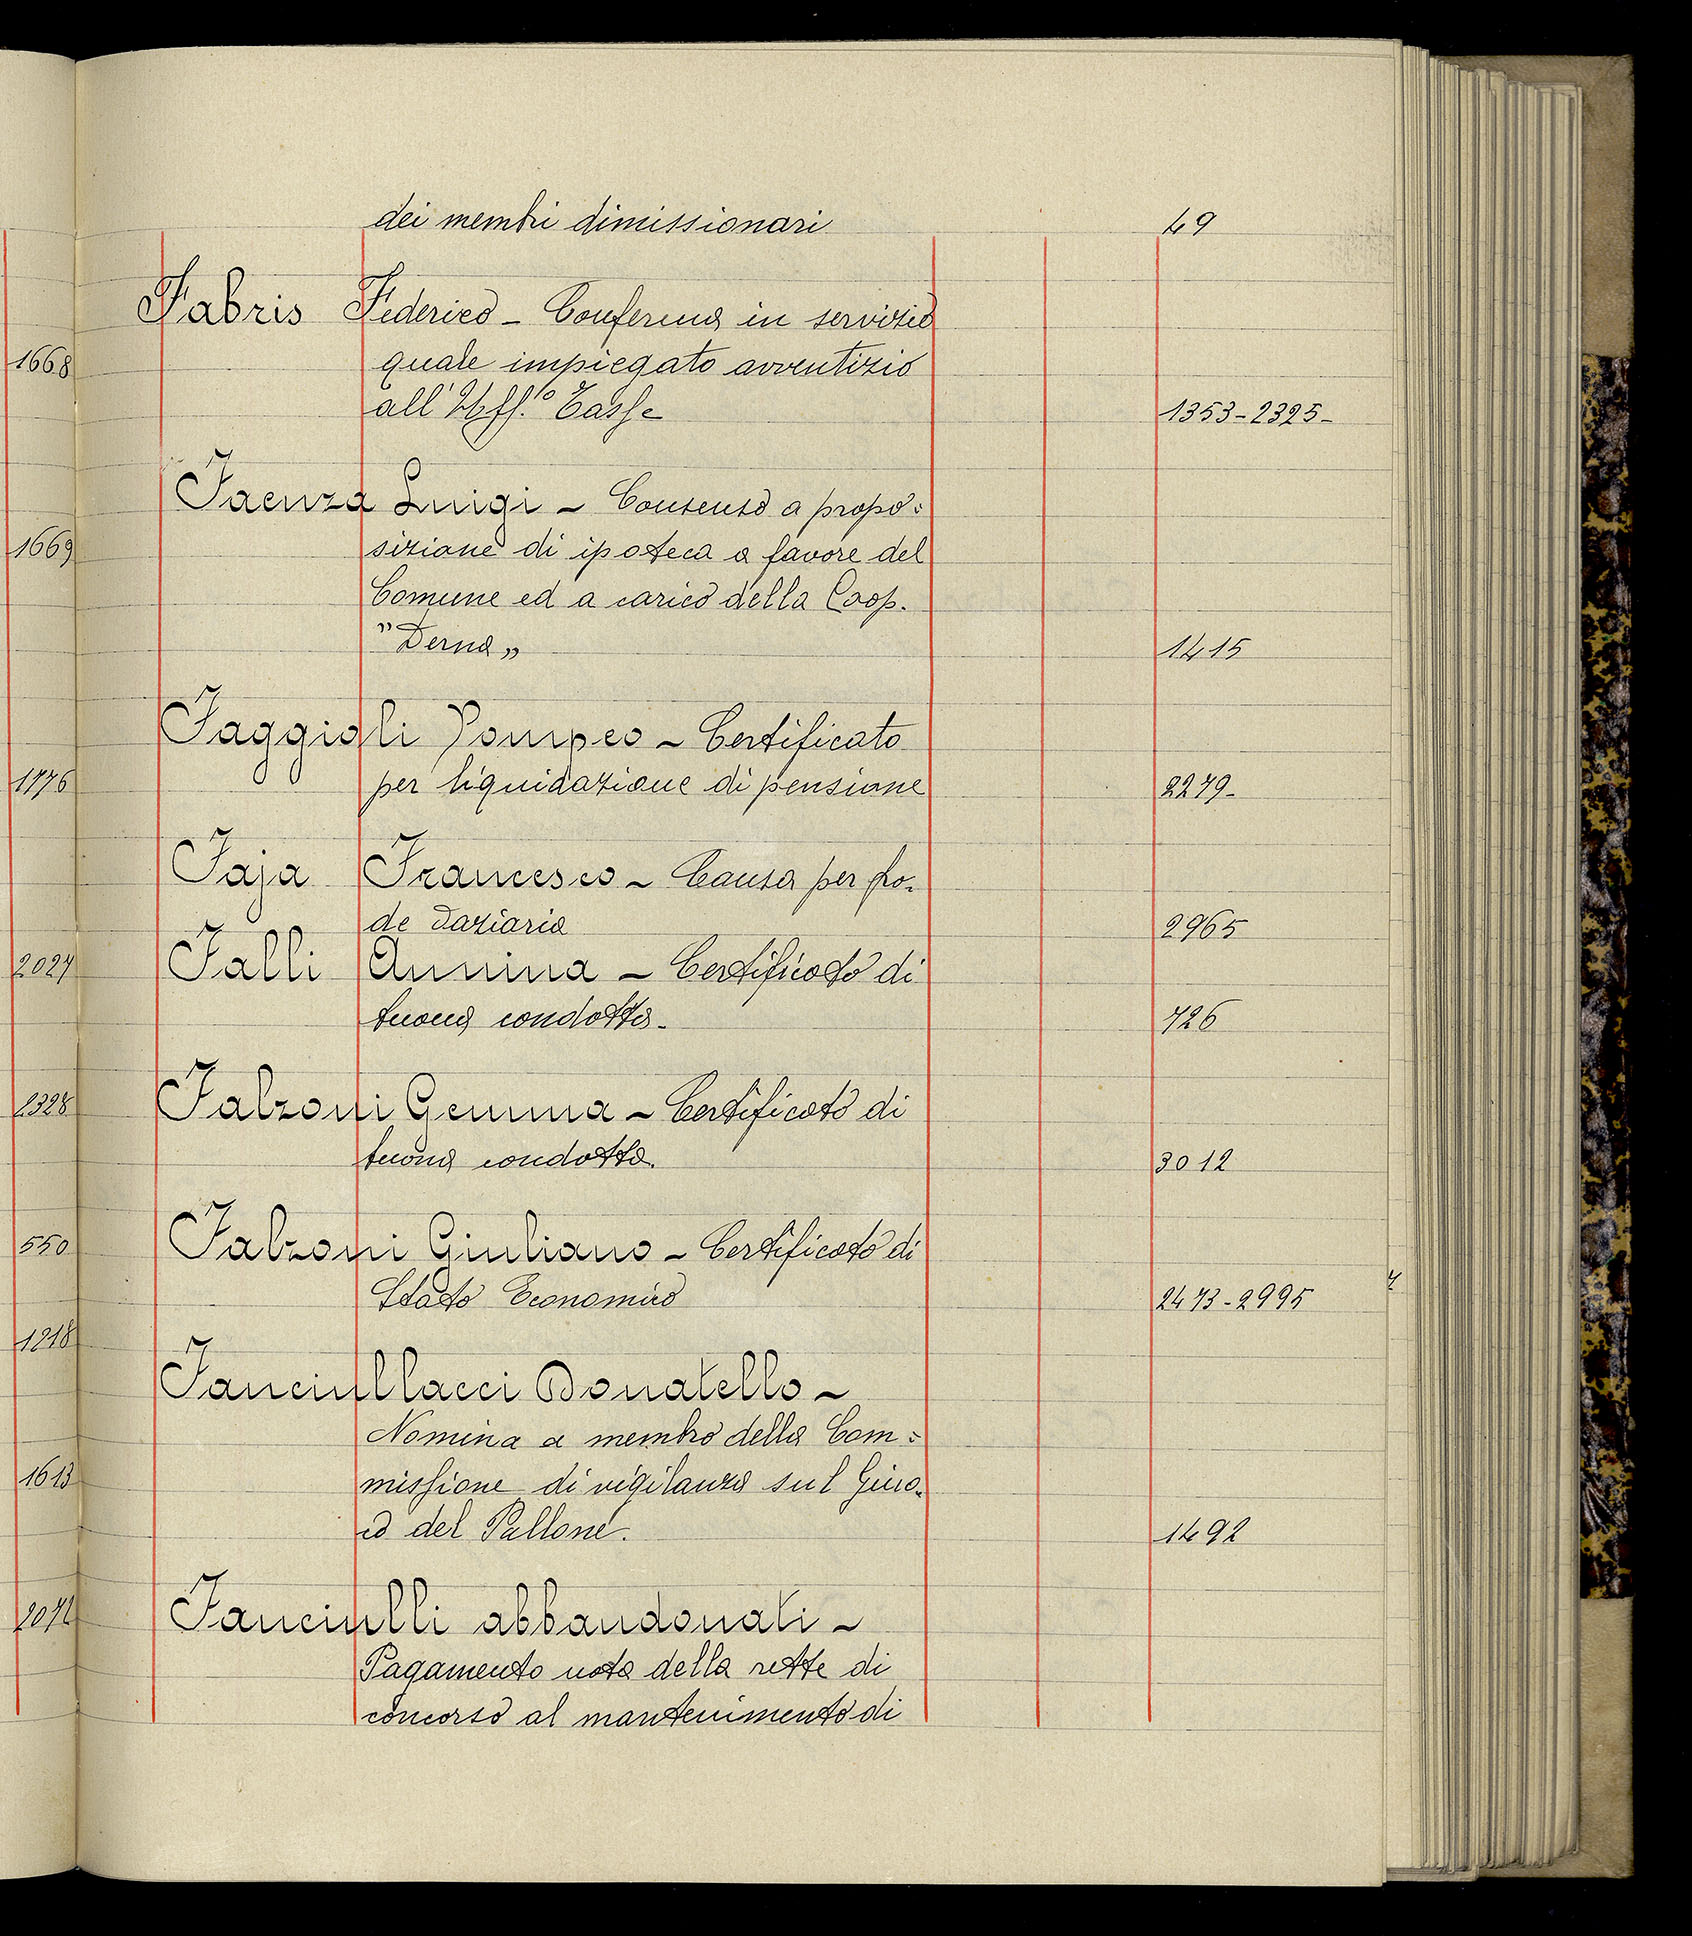 dei membri dimissionari 49
Fabris Federico - Conferma in servizio
quale impiegato avventizio
all'Uff.io Tasse 1353-2325-
Faenza Luigi - Consenso a propo=
sizione di ipoteca a favore del
Comune ed a carico della Coop.
"Derna" 1415
Faggioli Pompeo - Certificato
per liquidazione di pensione 2279-
Faja Francesco - Causa per fro-
de daziaria 2965
Falli Annina - Certificato di
buona condotta- 726
Falzoni Gemma - Certificato di
buona condotta. 3012
Falzoni Giuliano - Certificato di
Stato Economico 2473-2995
Fanciullacci Donatello -
Nomina a membro della Com=
missione di vigilanza sul Giuo-
co del Pallone. 1492
Fanciulli abbandonati -
Pagamento nota della rette di
concorso al mantenimento di
1668
1669
1776
2027
2328
550
1218
1613